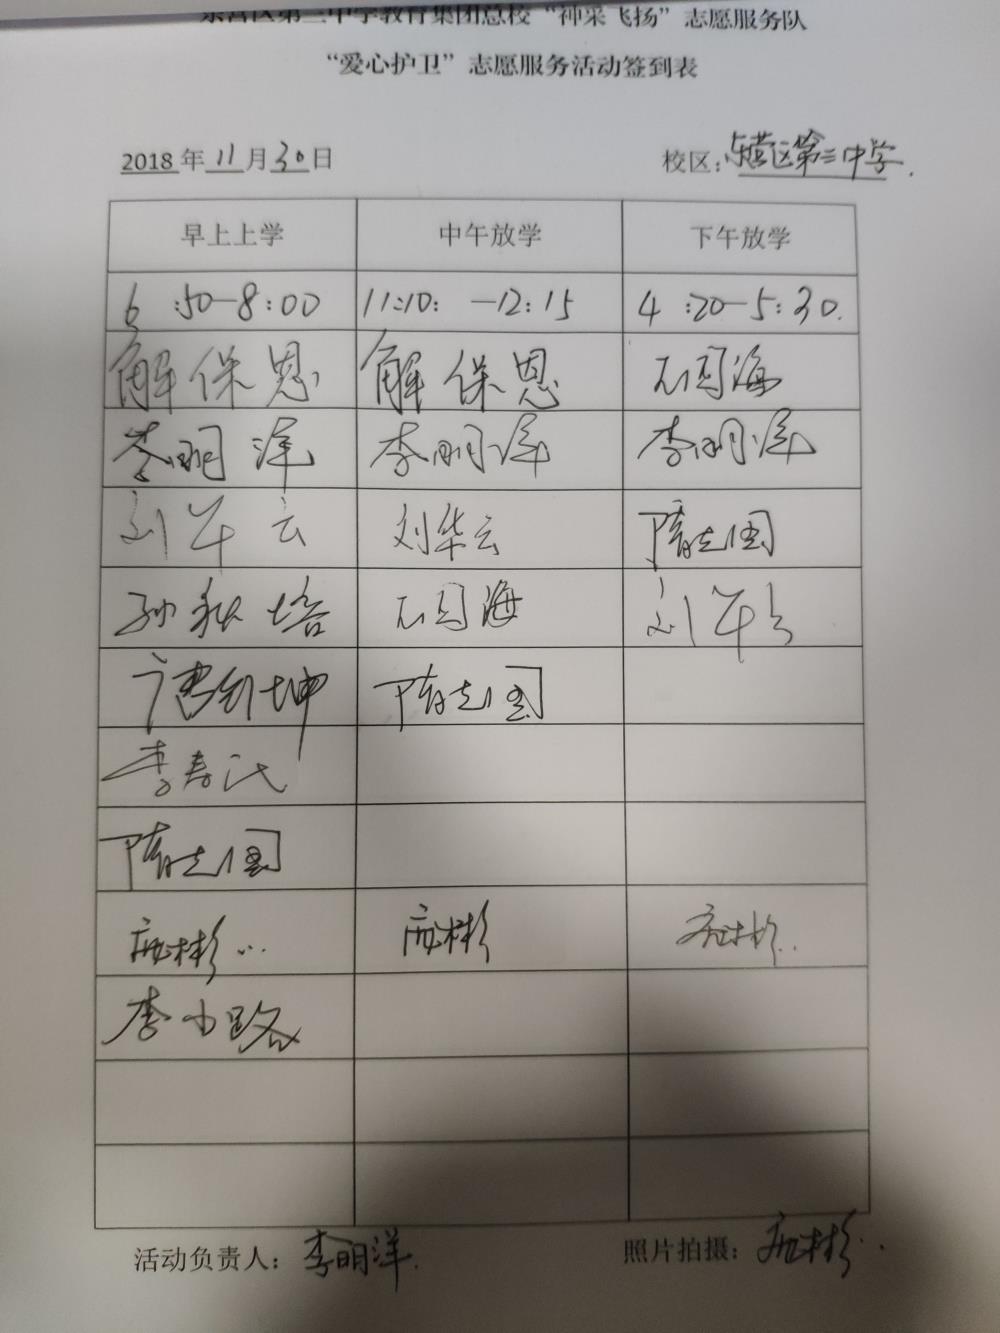 东营区第三中学教育集团总校“神采飞扬”志愿服务队
“爱心护卫”志愿服务活动签到表
2018年11月30日 校区：东营区第三中学.
早上上学 中午放学 下午放学
6:50-8:00 11:10:-12:15 4:20-5:30.
解保恩 解保恩 石国海
李明洋 李明洋 李明洋
刘华云 刘华云 隋志国
孙秋培 石国海 刘华云
唐钊坤 隋志国
李春氏
隋志国
庞彬彬.. 庞彬彬 庞彬彬..
李小路
活动负责人：李明洋. 照片拍摄：庞彬彬..